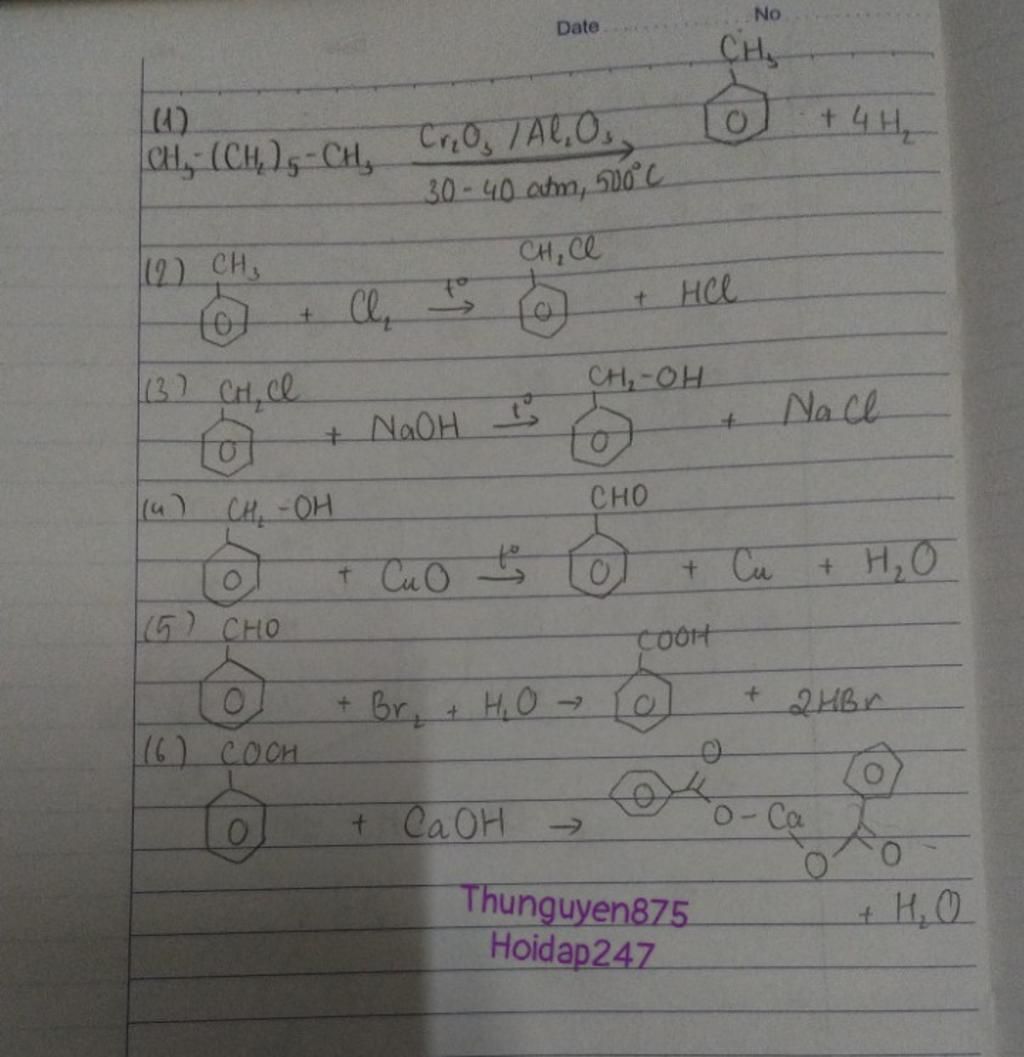 Date No
(1)
CH₃-(CH₂)₅-CH₃ Cr₂O₃ / Al₂O₃ 30-40 atm, 500°C CH₃ + 4H₂
(2) CH₃ + Cl₂ t° → CH₂Cl + HCl
(3) CH₂Cl + NaOH t° → CH₂-OH + NaCl
(4) CH₂-OH + CuO t° → CHO + Cu + H₂O
(5) CHO + Br₂ + H₂O → COOH + 2HBr
(6) COOH + CaOH → O O-Ca O O
+ H₂O
Thunguyen875
Hoidap247